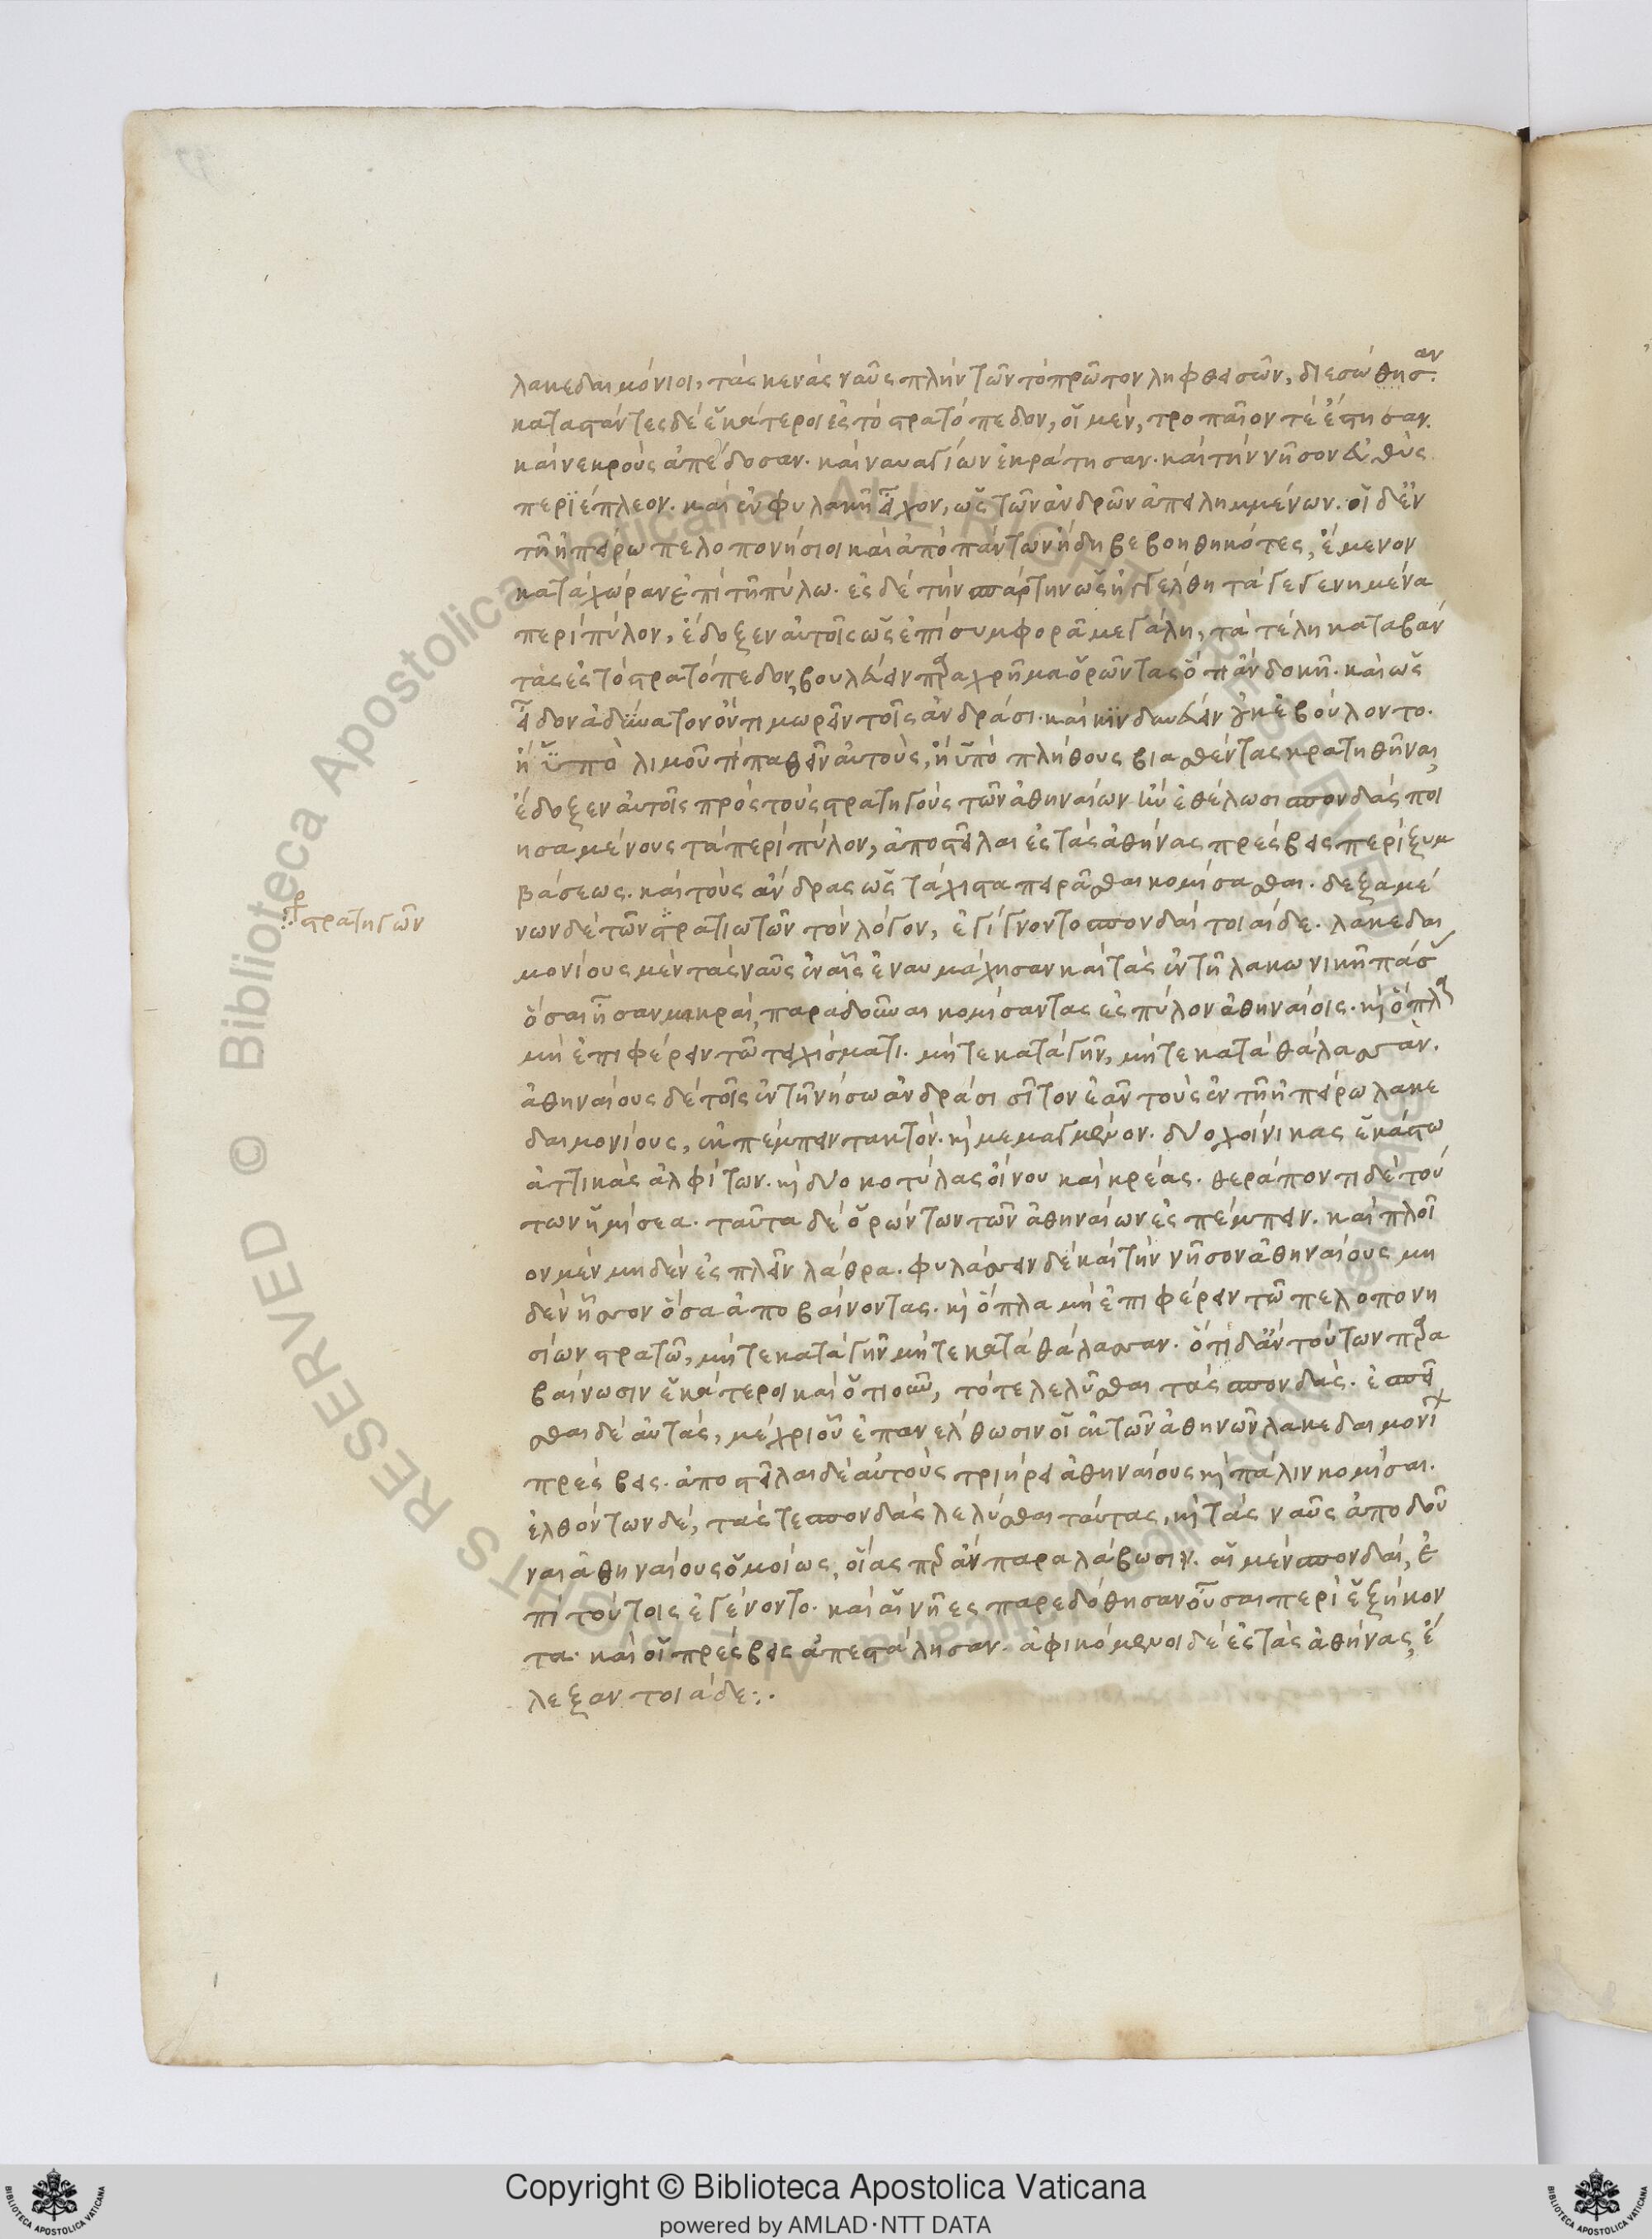 λακεδαιμόνιοι, τὰς κενὰς ναῦς πλὴν τῶν τὸ πρῶτον ληφθεισῶν, διεσώθησαν.
καταστάντες δὲ ἑκάτεροι ἐς τὸ στρατόπεδον, οἱ μὲν, τροπαῖον τὲ ἔστησαν.
καὶ νεκροὺς ἀπέδοσαν. καὶ ναυαγίων ἐκράτησαν. καὶ τὴν νῆσον εὐθὺς
περιέπλεον. καὶ ἐν φυλακῆ εἶχον, ὡς τῶν ἀνδρῶν ἀπειλημμένων. οἱ δ' ἐν
τῆ ἠπείρω πελοπονήσιοι καὶ ἀπὸ πάντων ἤδη βεβοηθηκότες, ἔμενον
κατὰ χώραν ἐπὶ τῆ πύλω. ἐς δὲ τὴν σπάρτην ὡς ἠγγέλθη τὰ γεγενημένα
περὶ πύλον, ἔδοξεν αὐτοῖς ὡς ἐπὶ συμφορᾶ μεγάλη, τὰ τέλη καταβάν
τας ἐς τὸ στρατόπεδον, βουλεύειν παραχρῆμα ὁρῶντας ὅτι ἂν δοκῆ. καὶ ὡς
εἶδον ἀδύνατον ὂν τιμωρεῖν τοῖς ἀνδράσι. καὶ κινδυνεύειν οὐκ ἐβούλοντο.
ἢ ὑπὸ λιμοῦ τί παθεῖν αὐτοὺς, ἢ ὑπὸ πλήθους βιασθέντας κρατηθῆναι,
ἔδοξεν αὐτοῖς πρὸς τοὺς στρατηγοὺς τῶν ἀθηναίων ἢν ἐθέλωσι σπονδὰς ποι
ησαμένους τὰ περὶ πύλον, ἀποστεῖλαι ἐς τὰς ἀθήνας πρέσβεις περὶ ξυμ
βάσεως. καὶ τοὺς ἄνδρας ὡς τάχιστα πειρᾶσθαι κομίσασθαι. δεξαμέ
στρατηγῶν
νων δὲ τῶν στρατιωτῶν τὸν λόγον, ἐγίγνοντο σπονδαὶ τοιαίδε. λακεδαι
μονίους μὲν τὰς ναῦς ἐν αἷς ἐναυμάχησαν καὶ τὰς ἐν τῆ λακωνικῆ πάσας
ὅσαι ἦσαν μακραὶ, παραδοῦναι κομίσαντας ἐς πύλον ἀθηναίοις. καὶ ὅπλα
μὴ ἐπιφέρειν τῶ τειχίσματι. μήτε κατὰ γῆν, μήτε κατὰ θάλασσαν.
ἀθηναίους δὲ τοῖς ἐν τῆ νήσω ἀνδράσι σῖτον ἐᾶν τοὺς ἐν τῆ ἠπείρω λακε
δαιμονίους, ἐκπέμπειν τακτόν. καὶ μεμαγμένον. δύο χοίνικας ἑκάστω
ἀττικὰς ἀλφίτων. καὶ δύο κοτύλας οἴνου καὶ κρέας. θεράποντι δὲ τού
των ἡμίσεα. ταῦτα δὲ ὁρώντων τῶν ἀθηναίων ἐσπέμπειν. καὶ πλοῖ
ον μὲν μηδὲν ἐσπλεῖν λάθρα. φυλάσσειν δὲ καὶ τὴν νῆσον ἀθηναίους μη
δὲν ἧσσον ὅσα ἀποβαίνοντας. καὶ ὅπλα μὴ ἐπιφέρειν τῶ πελοπονη
σίων στρατῶ, μήτε κατὰ γῆν μήτε κατὰ θάλασσαν. ὅτι δ' ἂν τούτων παρα
βαίνωσιν ἑκάτεροι καὶ ὁτιοῦν, τότε λελύσθαι τὰς σπονδάς. ἐσπεῖ
σθαι δὲ αὐτὰς, μέχρι οὗ ἐπανέλθωσιν οἱ ἐκ τῶν ἀθηνῶν λακεδαιμονίων
πρέσβεις. ἀποστεῖλαι δὲ αὐτοὺς τριήρει ἀθηναίους καὶ πάλιν κομίσαι.
ἐλθόντων δὲ, τάς τε σπονδὰς λελύσθαι ταύτας, καὶ τὰς ναῦς ἀποδοῦ
ναι ἀθηναίους ὁμοίως, οἵας περ ἂν παραλάβωσιν. αἱ μὲν σπονδαὶ, ἐ
πὶ τούτοις ἐγένοντο. καὶ αἱ νῆες παρεδόθησαν οὖσαι περὶ ἑξήκον
τα. καὶ οἱ πρέσβεις ἀπεστάλησαν. ἀφικόμενοι δὲ ἐς τὰς ἀθήνας, ἔ
λεξαν τοιάδε:.
Copyright © Biblioteca Apostolica Vaticana
powered by AMLAD·NTT DATA